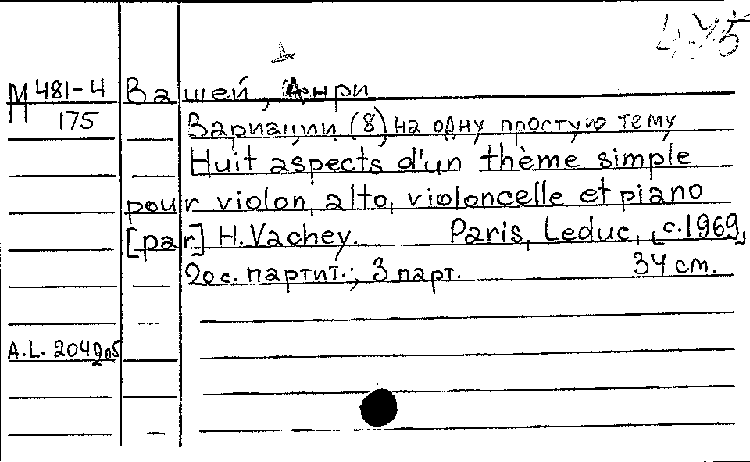 475
М 481-4
175
Вашей, Анри
Вариации (8) на одну простую тему
Huit aspects d'un thème simple
pour violon, alto, violoncelle et piano
[par] H. Vachey. Paris, Leduc, [c.1969,
20 с. партит.; 3 парт. 34 см.
A.L. 204